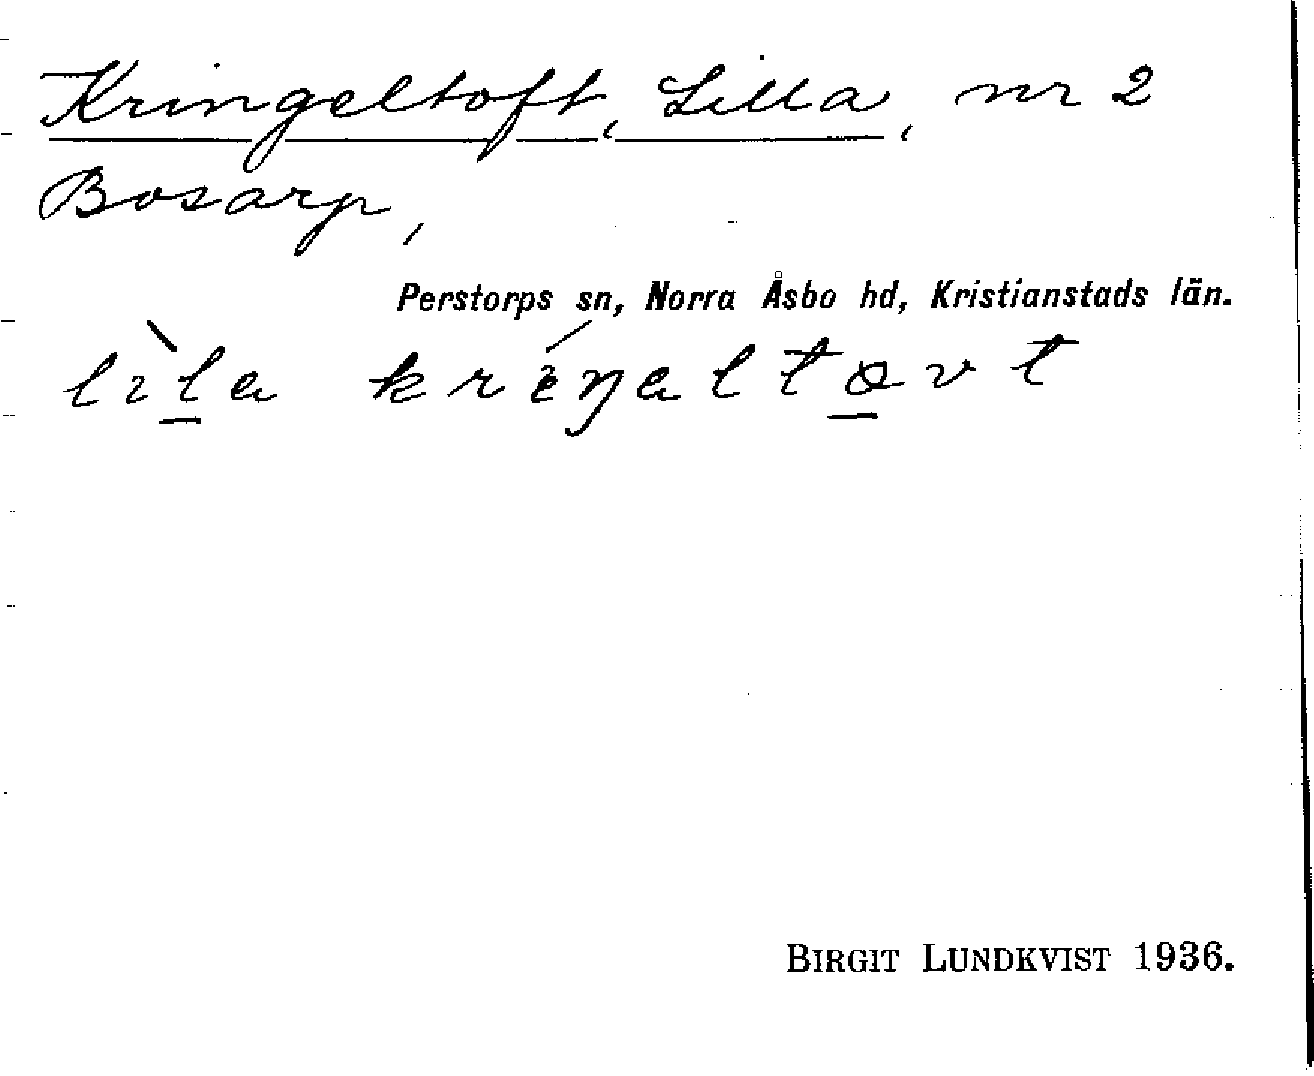 Kringeltoft, Lilla, nr 2
Bosarp,
Perstorps sn, Norra Åsbo hd, Kristianstads län.
lìla kréŋaltovt
BIRGIT LUNDKVIST 1936.